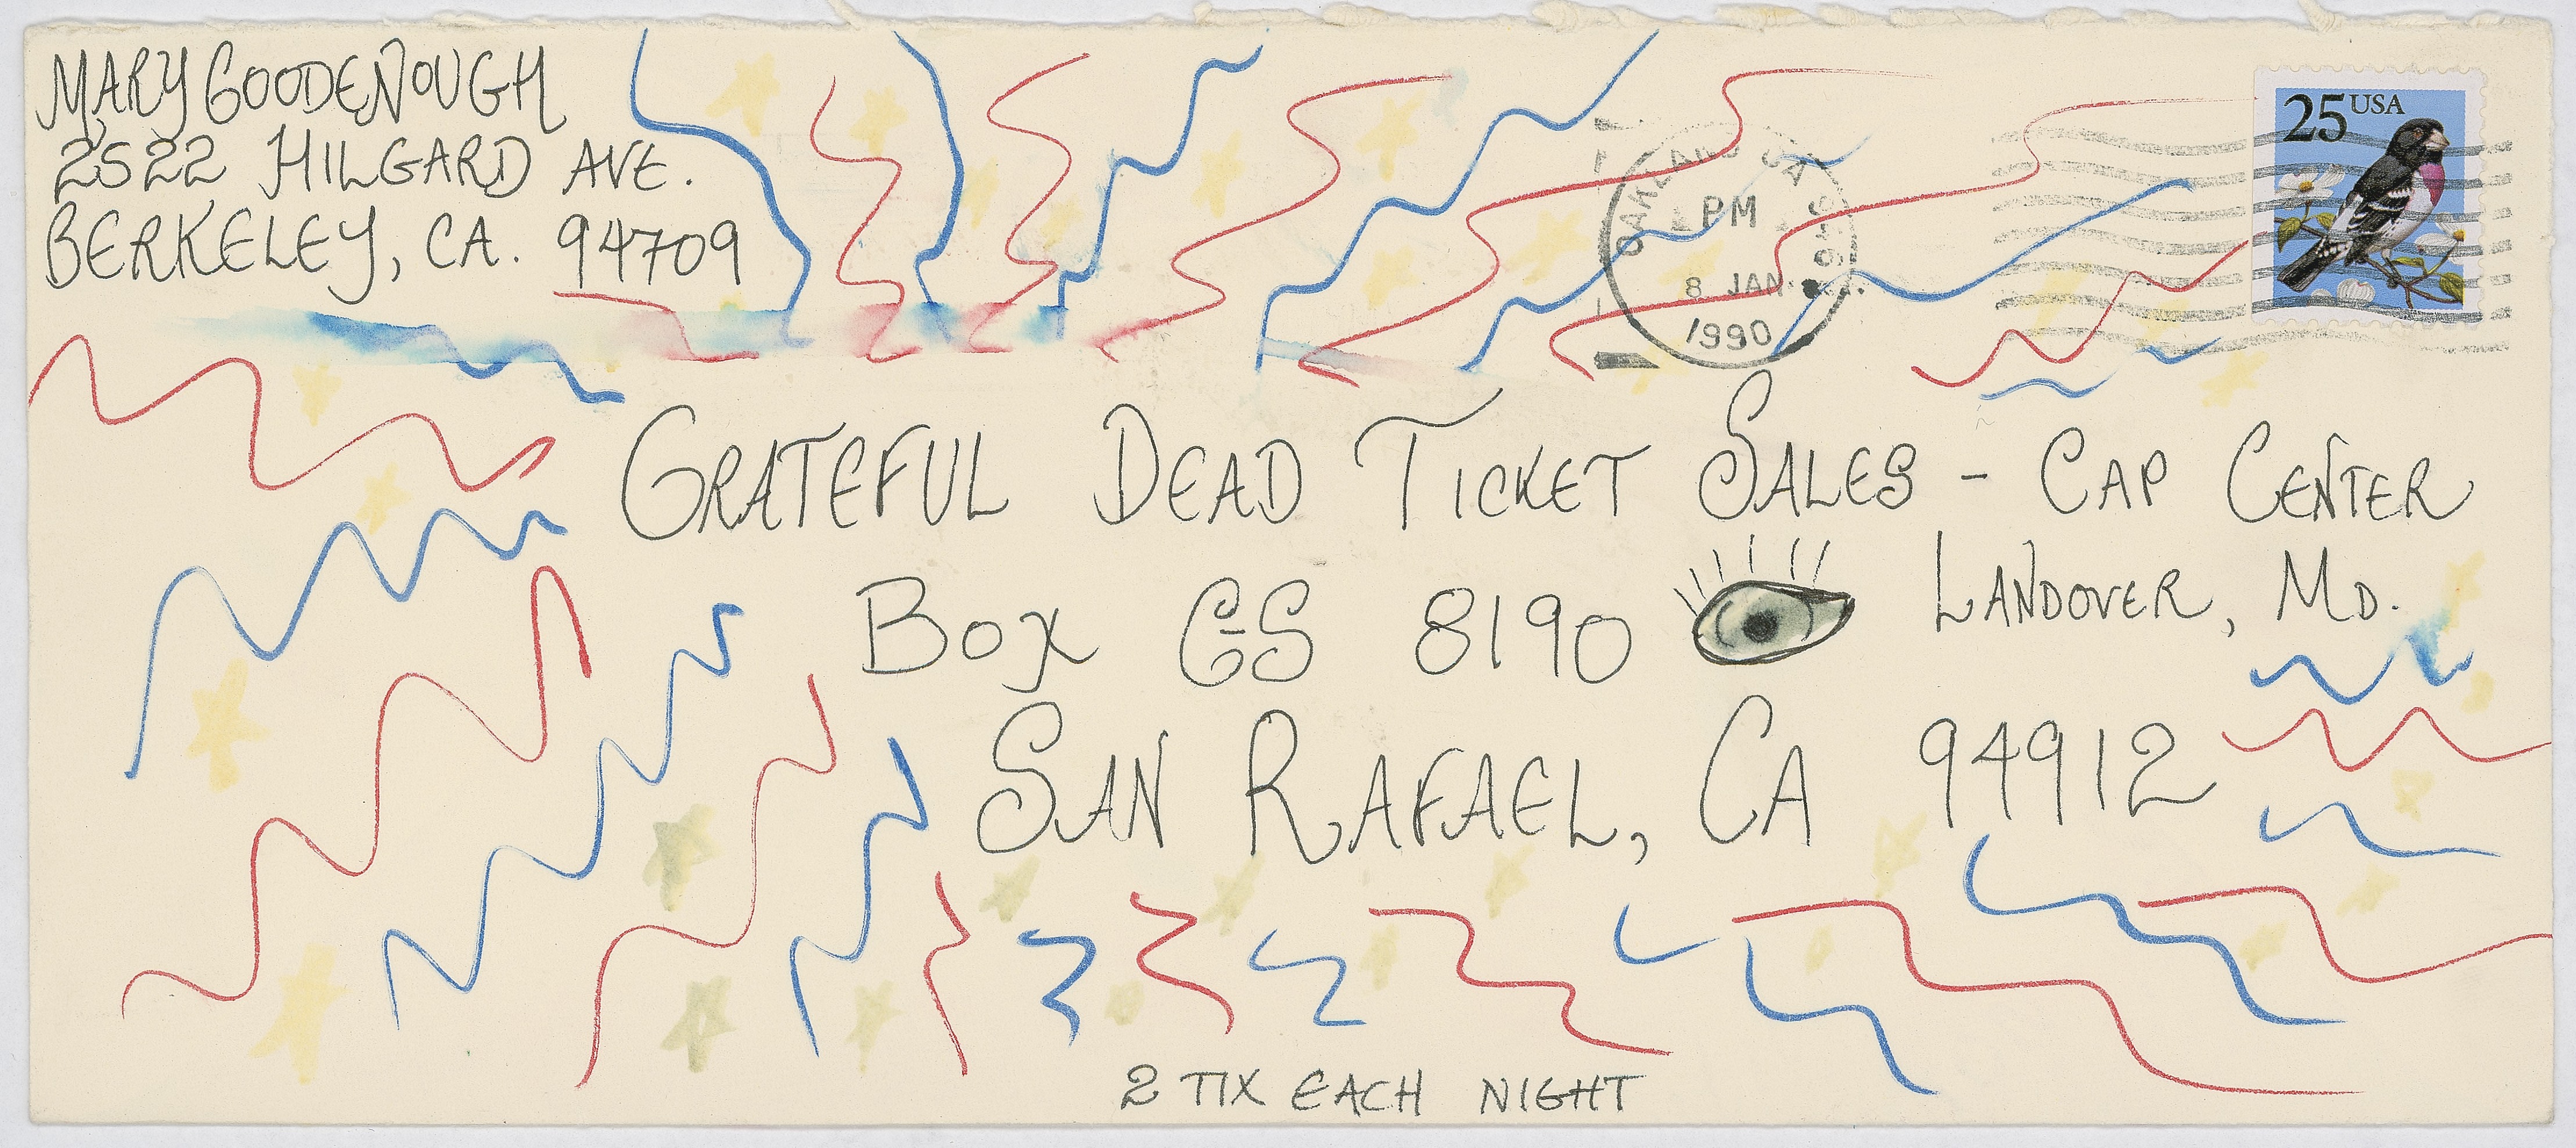 MARY GOODENOUGH
2522 HILGARD AVE.
BERKELEY, CA. 94709
25 USA
OAKLAND CA
PM
8 JAN
1990
GRATEFUL DEAD TICKET SALES - CAP CENTER
BOX GS 8190
LANDOVER, MD.
SAN RAFAEL, CA 94912
2 TIX EACH NIGHT